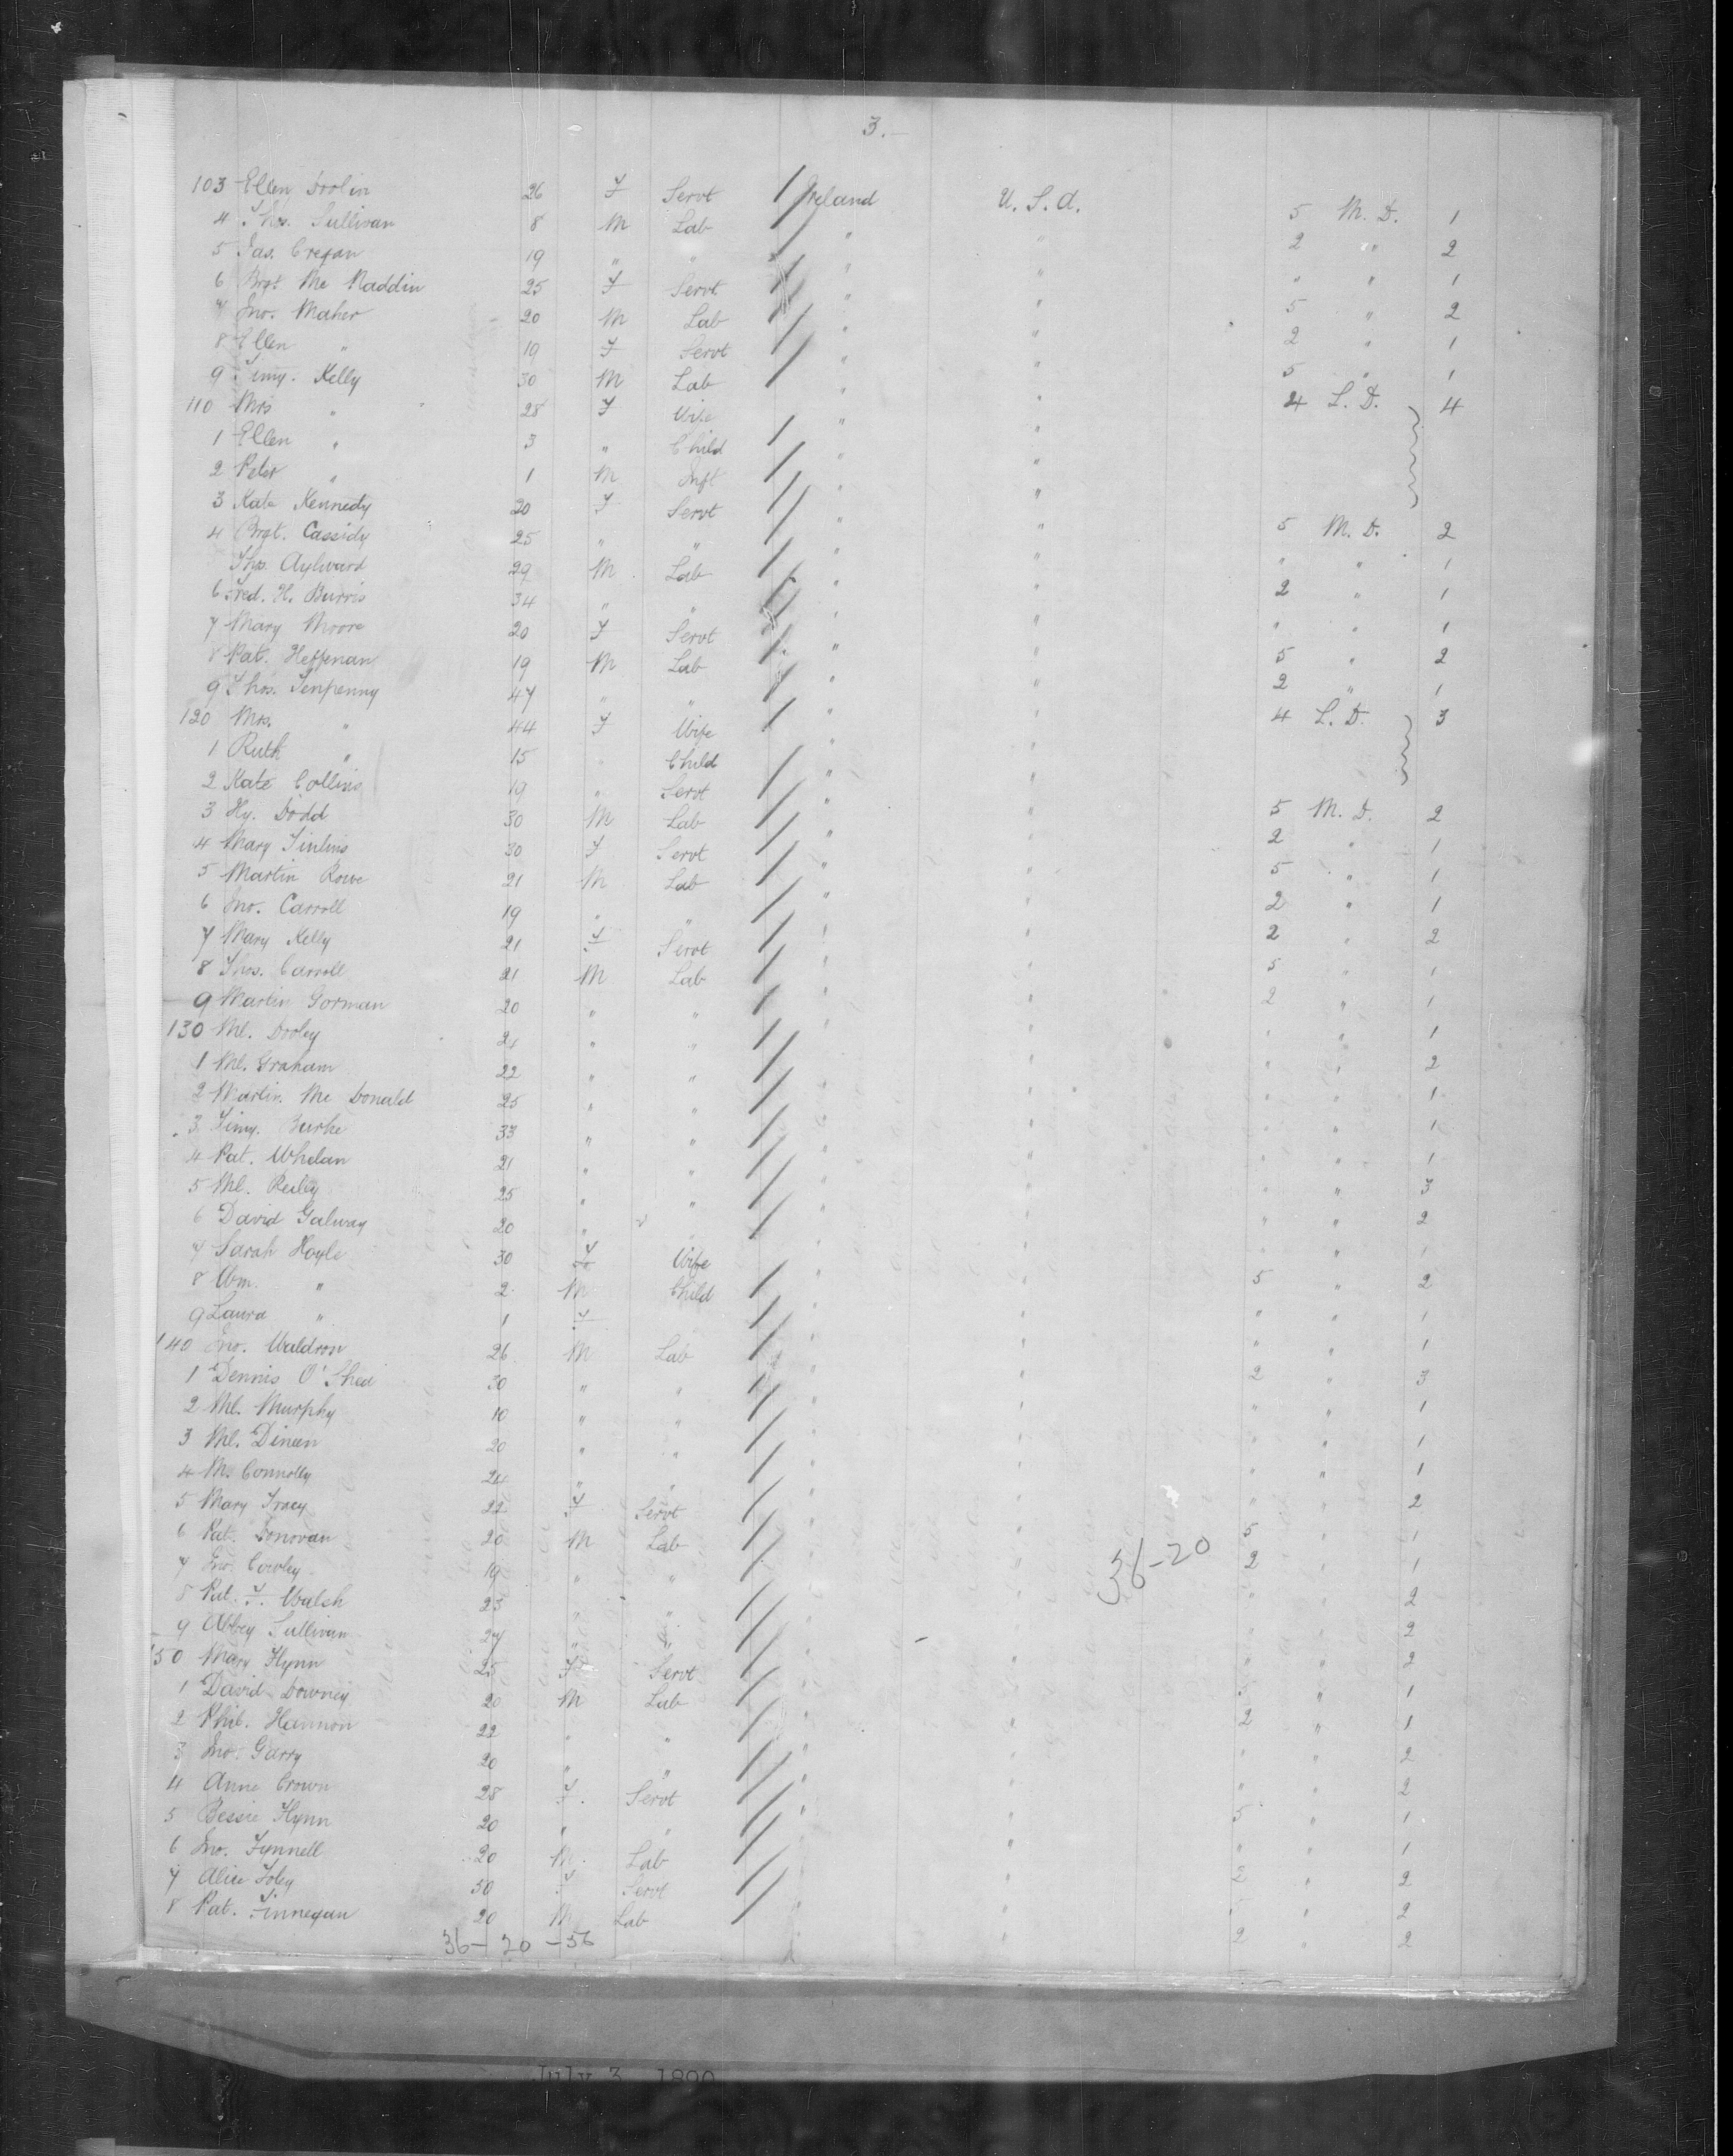 3.
103 Ellen Doolin 26 F Servt Ireland U. S. A. 5 M. D. 1
4 Thos. Sullivan 8 M Lab " " 2 " 2
5 Jas. Cregan 19 " " " " " " 1
6 Brgt. Mc Naddin 25 F Servt " " 5 " 2
7 Jno. Maher 20 M Lab " " 2 " 1
8 Ellen " 19 F Servt " " 5 " 1
9 Timy. Kelly 30 M Lab " " 4 L. D. 4
110 Mrs " 28 F Wife " "
1 Ellen " 3 " Child " "
2 Peter " 1 M Inft " "
3 Kate Kennedy 20 F Servt " " 5 M. D. 2
4 Brgt. Cassidy 25 " " " " " " 1
Thos. Aylward 29 M Lab " " 2 " 1
6 Fred. H. Burris 34 " " " " " " 1
7 Mary Moore 20 F Servt " " 5 " 2
8 Pat. Heffenan 19 M Lab " " 2 " 1
9 Thos. Tenpenny 47 " " " " 4 L. D. 3
120 Mrs. " 44 F Wife " "
1 Ruth " 15 " Child " "
2 Kate Collins 19 " Servt " " 5 M. D. 2
3 Hy. Dodd 30 M Lab " " 2 " 1
4 Mary Tinlins 30 F Servt " " 5 " 1
5 Martin Rowe 21 M Lab " " 2 " 1
6 Jno. Carroll 19 " " " " 2 " 2
7 Mary Kelly 21 F Servt " " 5 " 1
8 Thos. Carroll 21 M Lab " " 2 " 1
9 Martin Gorman 20 " " " " " " 1
130 Ml. Dooley 21 " " " " " " 2
1 Ml. Graham 22 " " " " " " 1
2 Martin Mc Donald 25 " " " " " " 1
3 Timy. Burke 33 " " " " " " 1
4 Pat. Whelan 21 " " " " " " 3
5 Ml. Reilly 25 " " " " " " 2
6 David Galway 20 " " " " " " 1
7 Sarah Hoyle 30 F Wife " " 5 " 2
8 Wm. " 2 M Child " " " " 1
9 Laura " 1 F " " " " 1
140 Jno. Waldron 26 M Lab " " 2 " 3
1 Dennis O'Shea 30 " " " " " " 1
2 Ml. Murphy 10 " " " " " " 1
3 Ml. Dineen 20 " " " " " " 1
4 M. Connolly 24 " " " " " " 2
5 Mary Tracy 22 F Servt " " 5 " 1
6 Pat. Donovan 20 M Lab " " 2 " 1
36-20
7 Jno. Cowley 19 " " " " " " 2
8 Pat. F. Walsh 23 " " " " " " 2
9 Abbey Sullivan 27 " " " " " " 2
150 Mary Flynn 25 F Servt " " 5 " 1
1 David Downey 20 M Lab " " 2 " 1
2 Phil. Hannon 22 " " " " " " 2
3 Jno. Garry 20 " " " " " " 2
4 Anne Crown 28 F. Servt " " 5 " 1
5 Bessie Flynn 20 " " " " " " 1
6 Jno. Fynnell 20 M. Lab " " 2 " 2
7 Alice Foley 50 F Servt " " " 2
8 Pat. Finnegan 20 M Lab " " 2 " 2
36-20-56
July 3, 1890